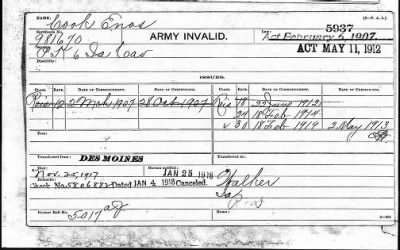 Cook Enos
Certificate No.
981670
ARMY INVALID.
5937
Act February 6, 1907.
ACT MAY 11, 1912
Disability
ISSUES.
CLASS. RATE. DATE OF COMMENCEMENT. DATE OF CERTIFICATE. CLASS. RATE. DATE OF COMMENCEMENT. DATE OF CERTIFICATE.
12 2 Mch 1907 28 Oct 1907
18 22 June 1912
24 18 Feb 1914
30 18 Feb 1919 2 May 1913
From
Transferred
DES MOINES
Nov. 25, 1917 JAN 25 1918
Check No. 5806882 Dated JAN 4 1918 Canceled.
Walker
Ia
Former Roll No. 5017